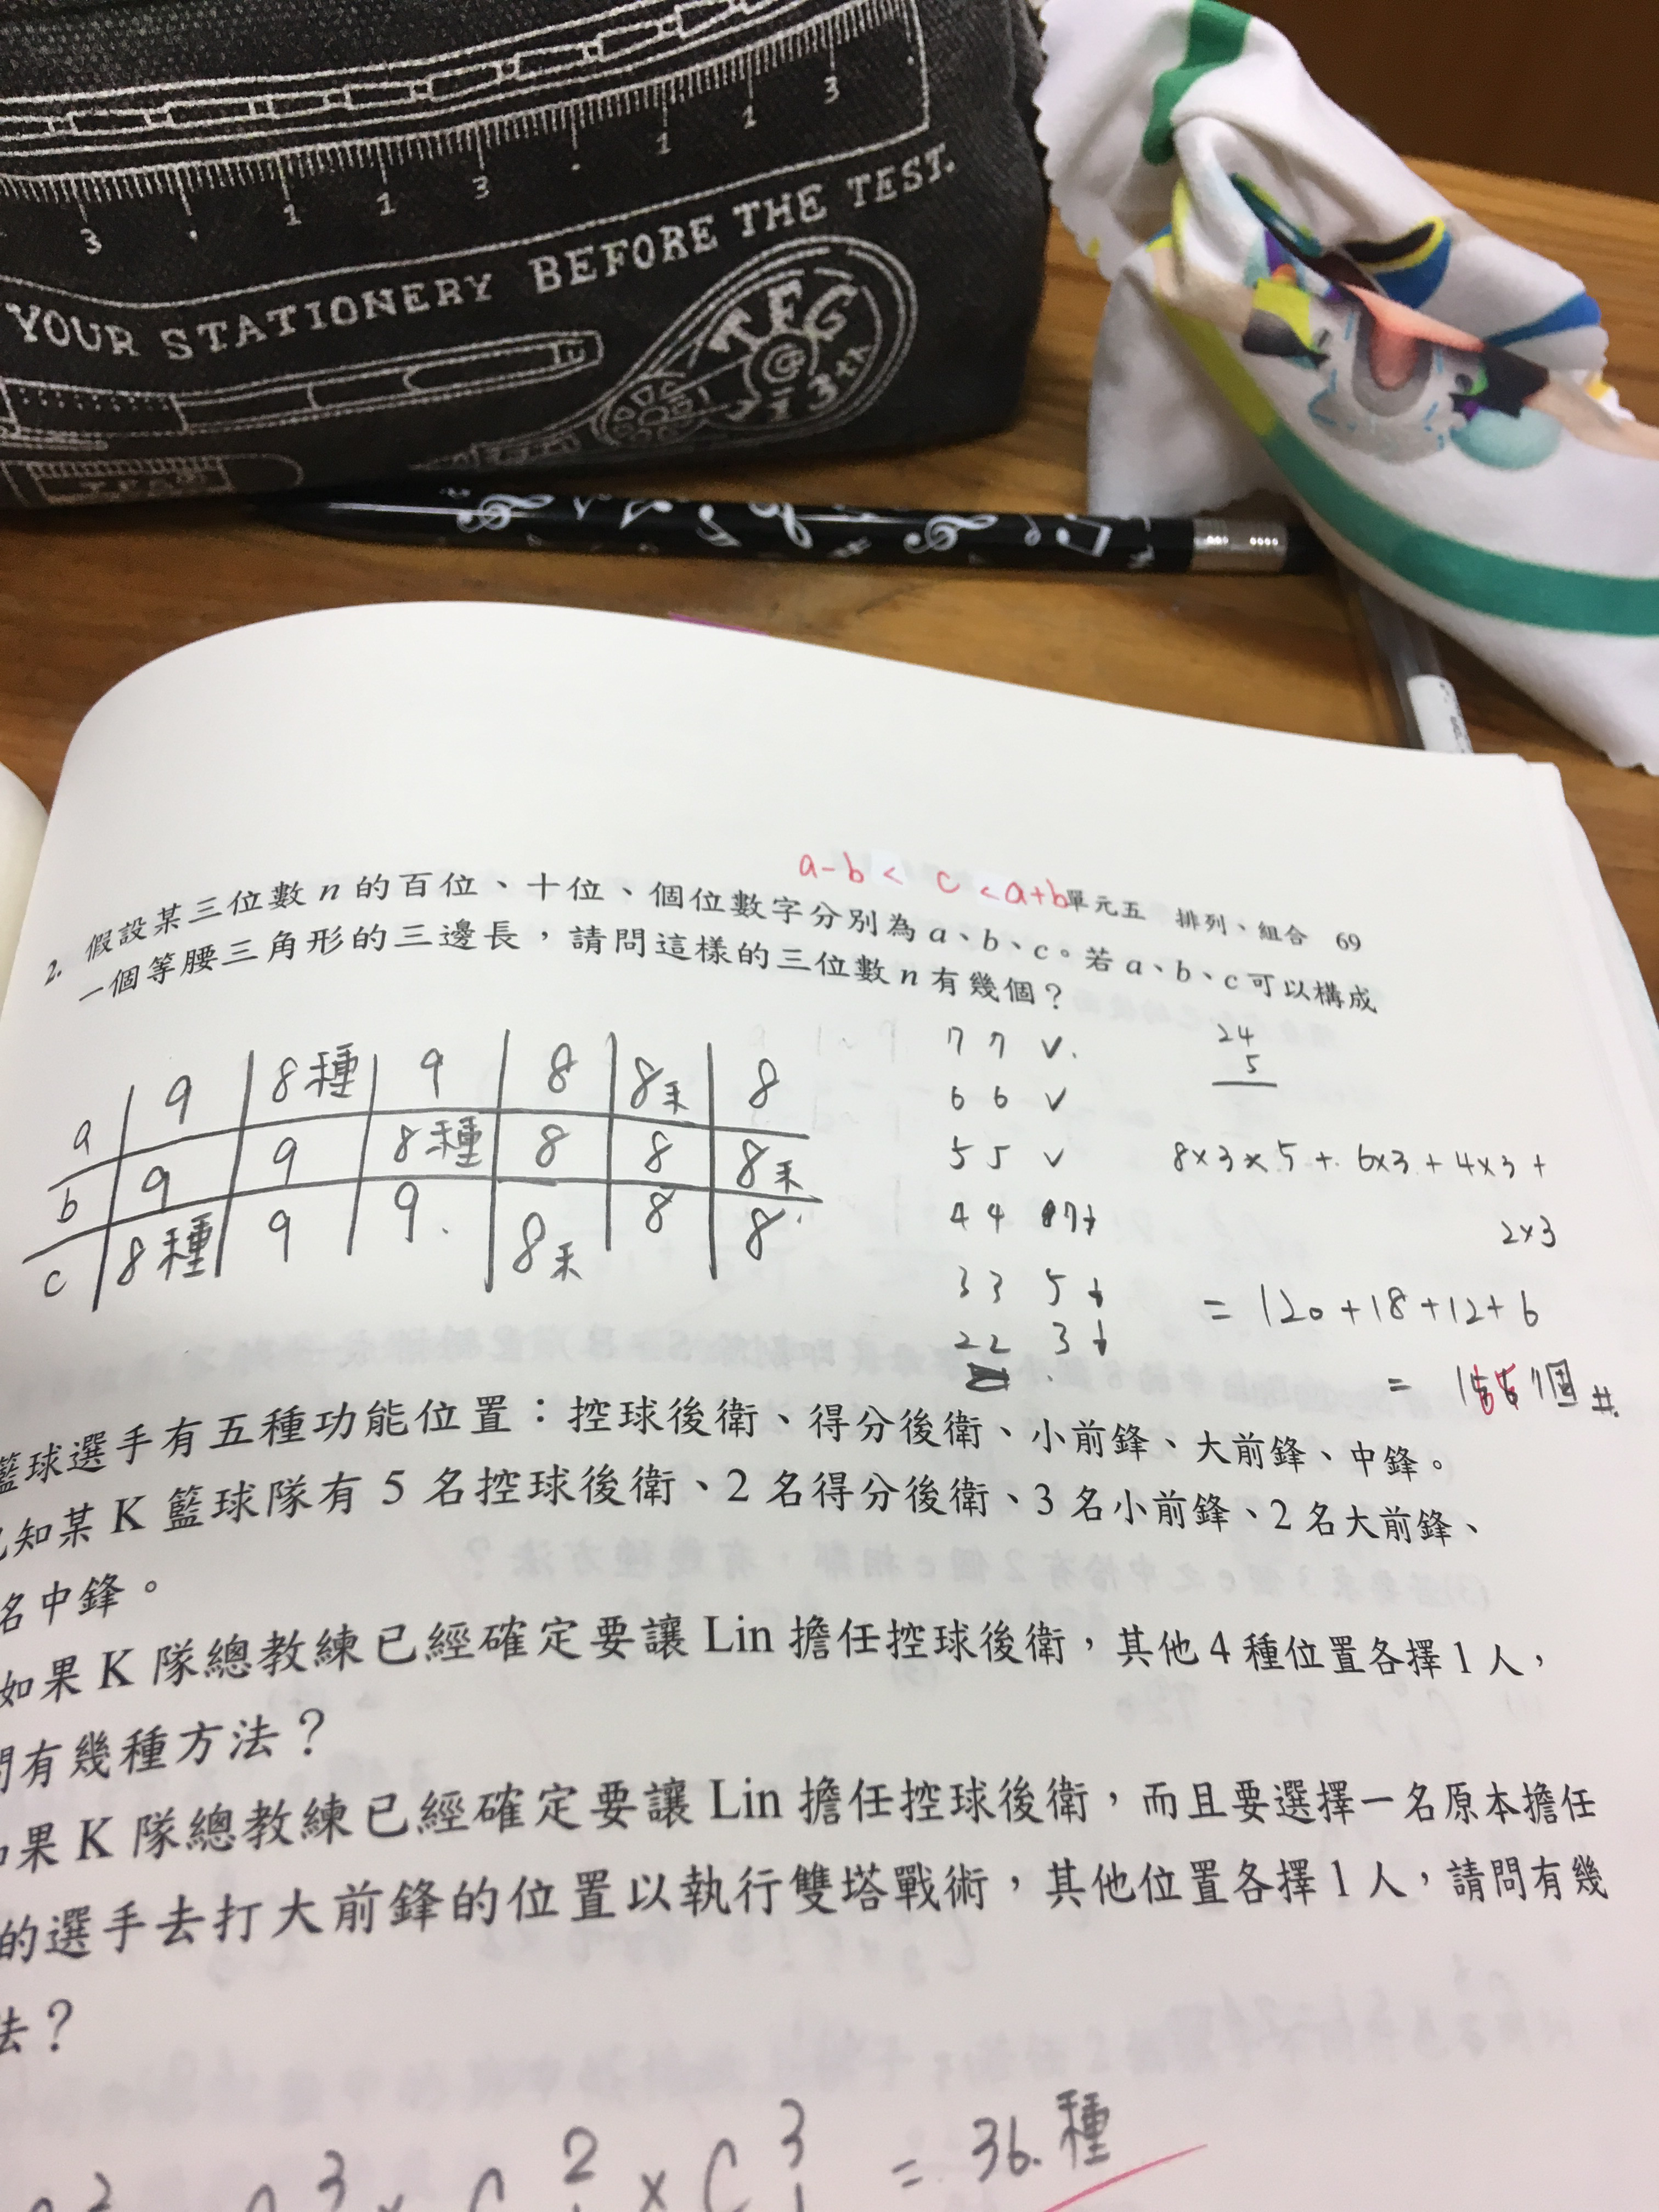 3 . 1 1 3 . 1 1 3
YOUR STATIONERY BEFORE THE TEST.
TFG
@
213th
a-b < c < a+b
單元五 排列、組合 69
2. 假設某三位數 n 的百位、十位、個位數字分別為 a、b、c。若 a、b、c 可以構成
一個等腰三角形的三邊長，請問這樣的三位數 n 有幾個？
a 9 8種 9 8 8 8
b 9 9 8種 8 8 8
c 8種 9 9. 8 8 8
7 7 ✓.
6 6 ✓
5 5 ✓
4 4 7↓
3 3 5↓
2 2 3↓
24
5
8×3×5 + 6×3 + 4×3 +
2×3
= 120+18+12+6
= 個 #.
籃球選手有五種功能位置：控球後衛、得分後衛、小前鋒、大前鋒、中鋒。
知某 K 籃球隊有 5 名控球後衛、2 名得分後衛、3 名小前鋒、2 名大前鋒、
名中鋒。
如果 K 隊總教練已經確定要讓 Lin 擔任控球後衛，其他 4 種位置各擇 1 人，
問有幾種方法？
果 K 隊總教練已經確定要讓 Lin 擔任控球後衛，而且要選擇一名原本擔任
的選手去打大前鋒的位置以執行雙塔戰術，其他位置各擇 1 人，請問有幾
法？
= 36.種